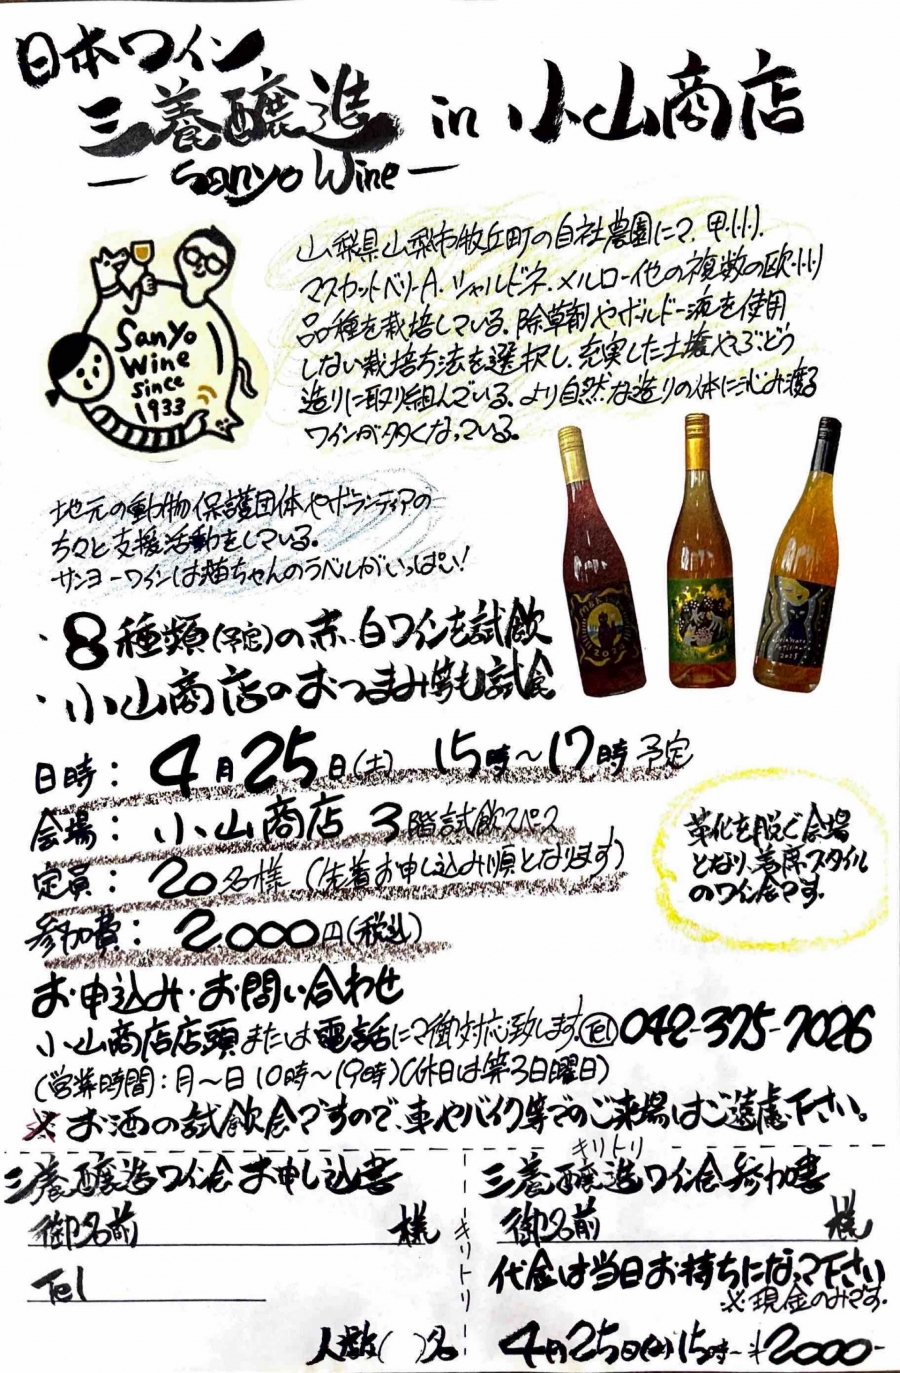 日本ワイン
三養醸造 in 小山商店
— Sanyo Wine —
Sanyo
Wine
Since
1933
山梨県山梨市牧丘町の自社農園にて、甲州、
マスカットベリーA、シャルドネ、メルロー他の複数の欧州
品種を栽培している。除草剤やボルドー液を使用
しない栽培方法を選択し、充実した土壌やぶどう
造りに取り組んでいる。より自然な造りの体に沁み渡る
ワインが多くなっている。
地元の動物保護団体やボランティアの
方々と支援活動をしている。
サンヨーワインは猫ちゃんのラベルがいっぱい!
・8種類(予定)の赤、白ワインを試飲
・小山商店のおつまみ等も試食
日時: 4月25日(土) 15時〜17時予定
会場: 小山商店 3階試飲スペース
定員: 20名様 (先着お申し込み順となります)
参加費: 2,000円(税込)
革靴を脱ぐ会場
となり、着席スタイル
のワイン会です。
お申込み・お問い合わせ
小山商店店頭または電話にて御対応致します。Tel 042-375-7026
(営業時間:月〜日 10時〜19時)(休日は第3日曜日)
※お酒の試飲会ですので、車やバイク等でのご来場はご遠慮下さい。
キリトリ
三養醸造ワイン会お申し込書
御名前 様
Tel
人数( )名
キリトリ
三養醸造ワイン会参加書
御名前 様
代金は当日お持ちになって下さい
※現金のみです。
4月25日(土)15時〜 ¥2000-